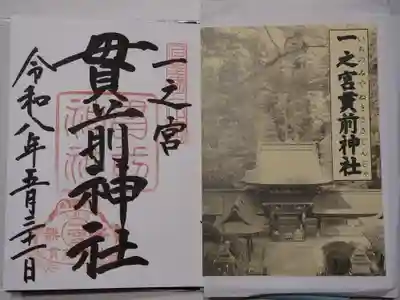 一之宮
貫前神社
令和八年五月三十一日
一之宮貫前神社